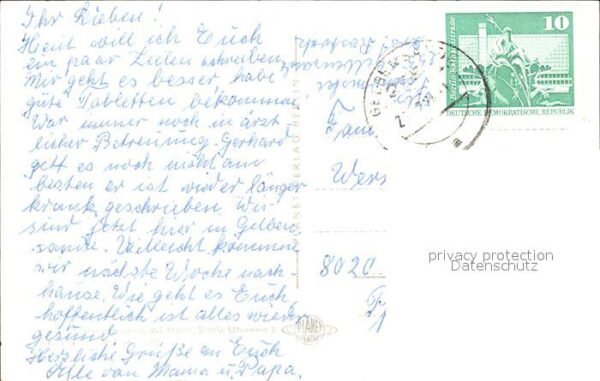 Ihr Lieben!
Heut will ich Euch
ein paar Zeilen schreiben.
Mir geht es besser, habe
gute Tabletten bekommen
War immer noch in ärzt
licher Betreuung. Gerhard
gett es noch nicht am
besten er ist wieder länger
krank geschrieben. Wir
sind jetzt hier in Gelben
sande. Vielleicht kommen
wir nächste Woche nach
hause. Wie geht es Euch
hoffentlich ist alles wieder
gesund
Herzliche Grüße an Euch
Alle von Mama u. Papa.
PLANET VERLAG BERLIN
PLANET
10
DEUTSCHE DEMOKRATISCHE REPUBLIK
Fam
Wers
8020
privacy protection
Datenschutz